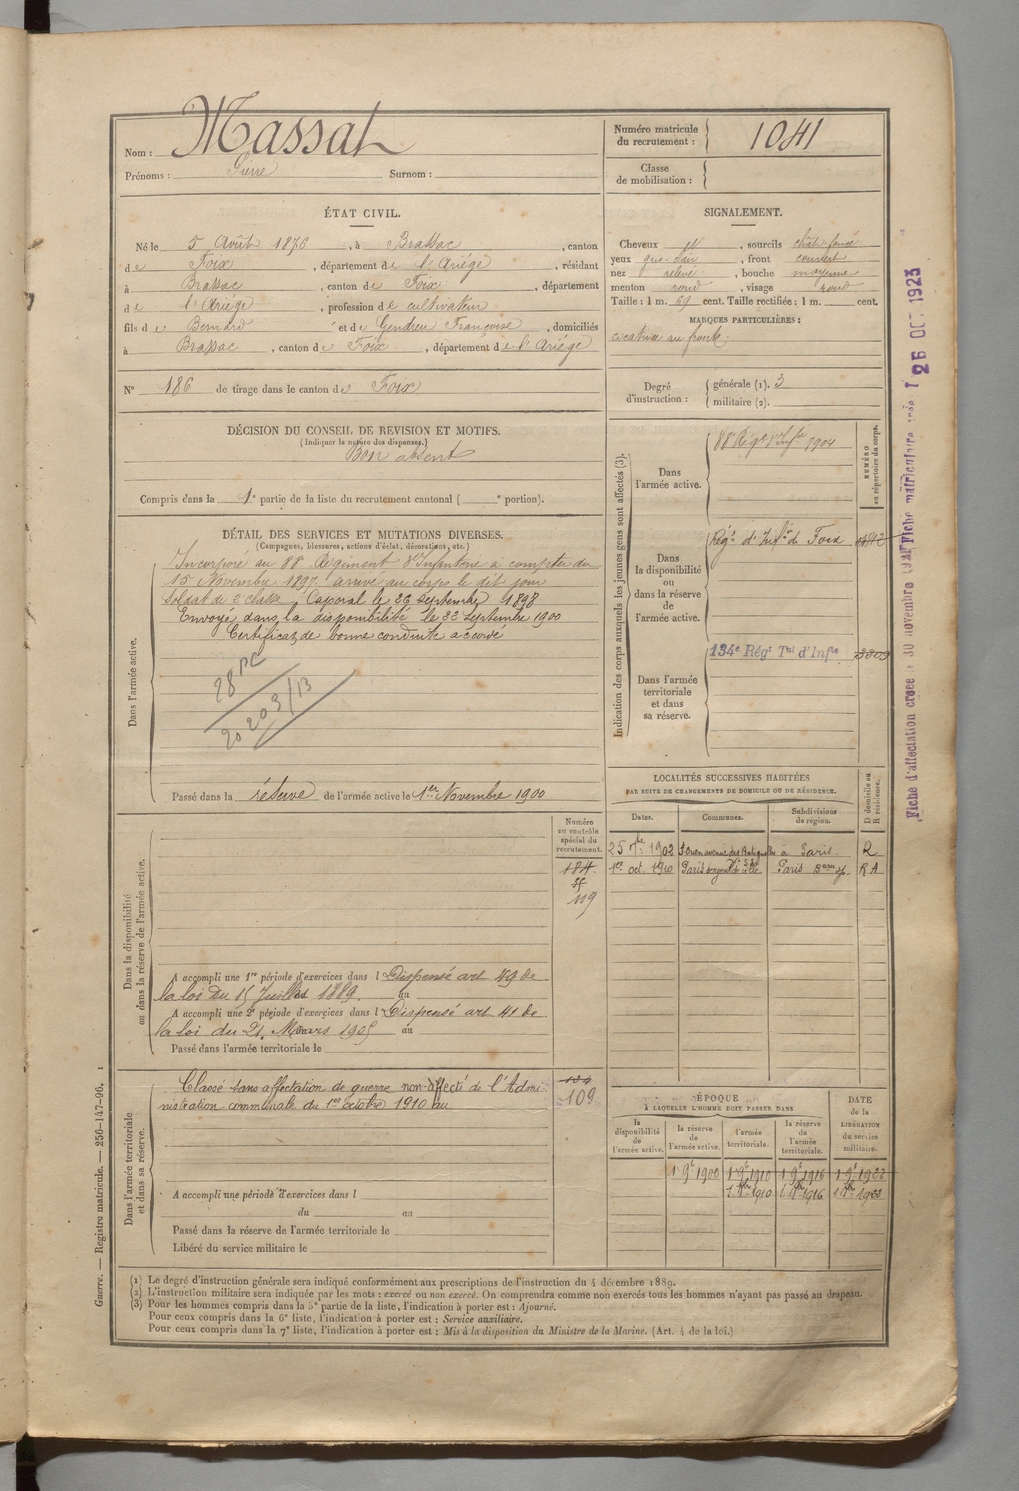 Nom : Massat
Prénoms : Pierre Surnom :
Numéro matricule du recrutement : 1041
Classe de mobilisation :
ÉTAT CIVIL.
Né le 5 Août 1876, à Brassac, canton
de Foix, département de l'Ariège, résidant
à Brassac, canton de Foix, département
de l'Ariège, profession de cultivateur
fils de Bernard et de Gendreu Françoise, domiciliés
à Brassac, canton de Foix, département de l'Ariège
N° 186 de tirage dans le canton de Foix
SIGNALEMENT.
Cheveux , sourcils chât. foncé
yeux gris-clair, front couvert
nez relevé, bouche moyenne
menton rond, visage rond
Taille : 1 m. 69 cent. Taille rectifiée : 1 m. cent.
MARQUES PARTICULIÈRES :
cicatrice au front
Degré d'instruction : générale (1). 3
militaire (2).
DÉCISION DU CONSEIL DE REVISION ET MOTIFS.
(Indiquer la nature des dispenses.)
Bon absent
Compris dans la 1e partie de la liste du recrutement cantonal ( e portion).
DÉTAIL DES SERVICES ET MUTATIONS DIVERSES.
(Campagnes, blessures, actions d'éclat, décorations, etc.)
Dans l'armée active.
Incorporé au 88e Régiment d'Infanterie à compter du
15 Novembre 1897. arrivé au corps le dit jour
Soldat de 2e classe, Caporal le 26 septembre 1898
Envoyé dans la disponibilité le 22 septembre 1900
Certificat de bonne conduite accordé
20203/13
Passé dans la réserve de l'armée active le 1er Novembre 1900
Indication des corps auxquels les jeunes gens sont affectés (3).
Dans l'armée active.
88e Régt d'Infie 1904
NUMÉRO au répertoire du corps.
Dans la disponibilité ou dans la réserve de l'armée active.
Régt d'Infie de Foix
Dans l'armée territoriale et dans sa réserve.
134e Régt Tial d'Infie
Fiche d'affectation créée le 30 novembre
Fiche matriculaire
26 OCT 1923
LOCALITÉS SUCCESSIVES HABITÉES
PAR SUITE DE CHANGEMENTS DE DOMICILE OU DE RÉSIDENCE.
Dates. Communes. Subdivisions de région. D domicile ou R résidence.
25 7bre 1902 St Ouen avenue des Batignolles à Paris. R
1er oct. 1910 Paris sergent de ville Paris RA
Dans la disponibilité ou dans la réserve de l'armée active.
Numéro au contrôle spécial du recrutement.
184
119
A accompli une 1re période d'exercices dans l Dispensé art 49 de
la loi du 15 Juillet 1889. au
A accompli une 2e période d'exercices dans l Dispensé art 41 de
la loi du 21 Mars 1905 au
Passé dans l'armée territoriale le
Dans l'armée territoriale et dans sa réserve.
Classé sans affectation de guerre non-affecté de l'Admi-
nistration communale du 1er octobre 1910 au
109
A accompli une période d'exercices dans l
du au
Passé dans la réserve de l'armée territoriale le
Libéré du service militaire le
ÉPOQUE
À LAQUELLE L'HOMME DOIT PASSER DANS
la disponibilité de l'armée active. la réserve de l'armée active. l'armée territoriale. la réserve de l'armée territoriale.
DATE de la LIBÉRATION du service militaire.
1 9e 1900 1 9e 1910 1 9e 1916
Guerre. — Registre matricule. — 256-147-96. 1
(1) Le degré d'instruction générale sera indiqué conformément aux prescriptions de l'instruction du 4 décembre 1889.
(2) L'instruction militaire sera indiquée par les mots : exercé ou non exercé. On comprendra comme non exercés tous les hommes n'ayant pas passé au drapeau.
(3) Pour les hommes compris dans la 5e partie de la liste, l'indication à porter est : Ajourné.
Pour ceux compris dans la 6e liste, l'indication à porter est : Service auxiliaire.
Pour ceux compris dans la 7e liste, l'indication à porter est : Mis à la disposition du Ministre de la Marine. (Art. 4 de la loi.)